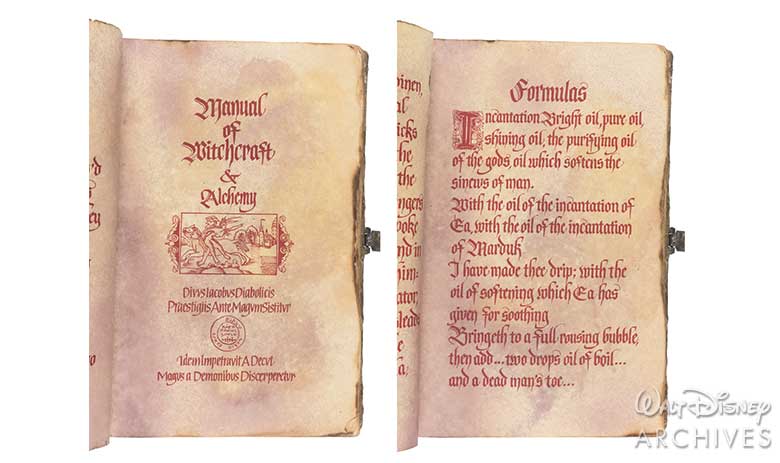 Manual
of
Witchcraft
&
Alchemy
Divvs Iacobvs Diabolicis
Praestigiis Ante Magvm Sistitvr
Idem Impetravit A Decvt
Magvs a Demonibvs Discerperetvr
Formulas
Incantation Bright oil, pure oil,
shining oil, the purifying oil
of the gods, oil which softens the
sinews of man.
With the oil of the incantation of
Ea, with the oil of the incantation
of Marduk
I have made thee drip; with the
oil of softening which Ea has
given for soothing
Bringeth to a full rousing bubble,
then add... two drops oil of boil...
and a dead man's toe...
Walt Disney
ARCHIVES